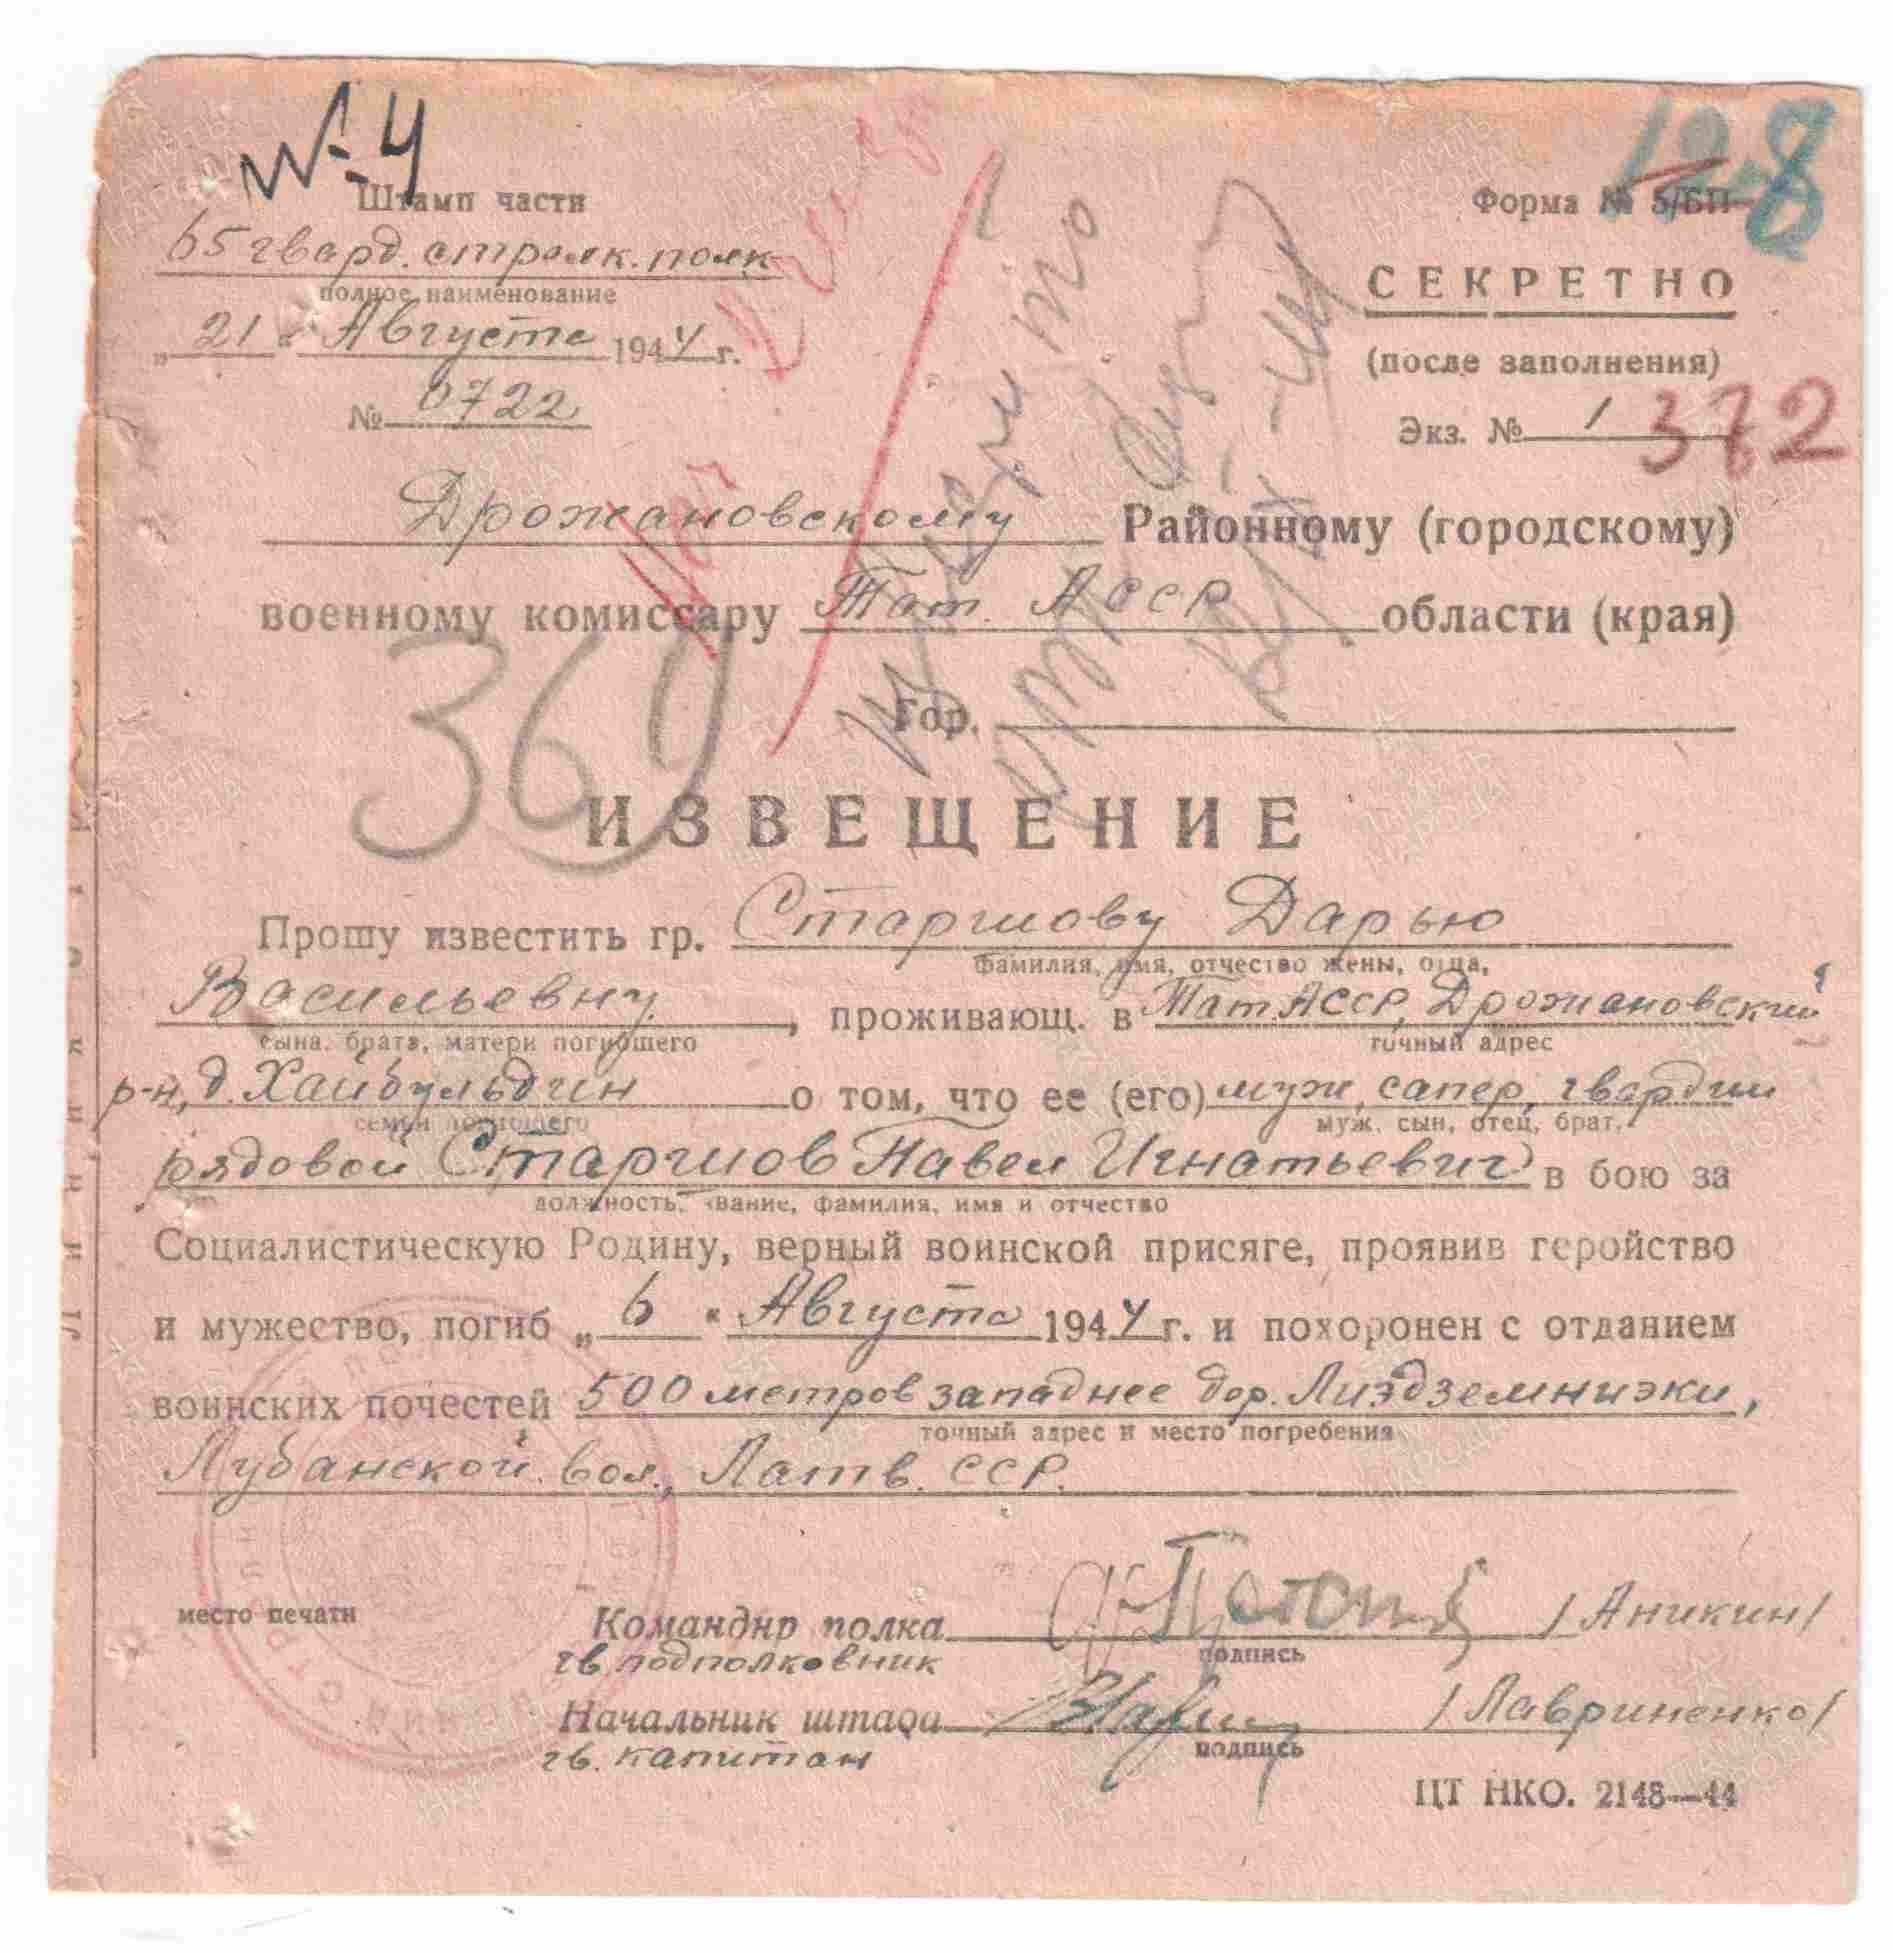 № 4
128
Штамп части
Форма № 5/БП
65 гвард. стрелк. полк
полное наименование
СЕКРЕТНО
„ 21 “ Августа 1944 г.
(после заполнения)
№ 0722
Экз. № 1
372
Дрожановскому Районному (городскому)
военному комиссару Тат. АССР области (края)
360
Гор.
ИЗВЕЩЕНИЕ
Прошу известить гр. Старшову Дарью
фамилия, имя, отчество жены, отца,
Васильевну, проживающ. в Тат.АССР, Дрожановский
сына, брата, матери погибшего
точный адрес
р-н, д. Хайбульдин о том, что ее (его) муж, сапер, гвардии
семьи погибшего
муж, сын, отец, брат,
рядовой Старшов Павел Игнатьевич в бою за
должность, звание, фамилия, имя и отчество
Социалистическую Родину, верный воинской присяге, проявив геройство
и мужество, погиб „ 6 “ Августа 1944 г. и похоронен с отданием
воинских почестей 500 метров западнее дер. Лиэдземниэки,
точный адрес и место погребения
Лубанской вол., Латв. ССР.
место печати
Командир полка /Аникин/
гв. подполковник
подпись
Начальник штаба /Лавриненко/
гв. капитан
подпись
ЦТ НКО. 2148—44